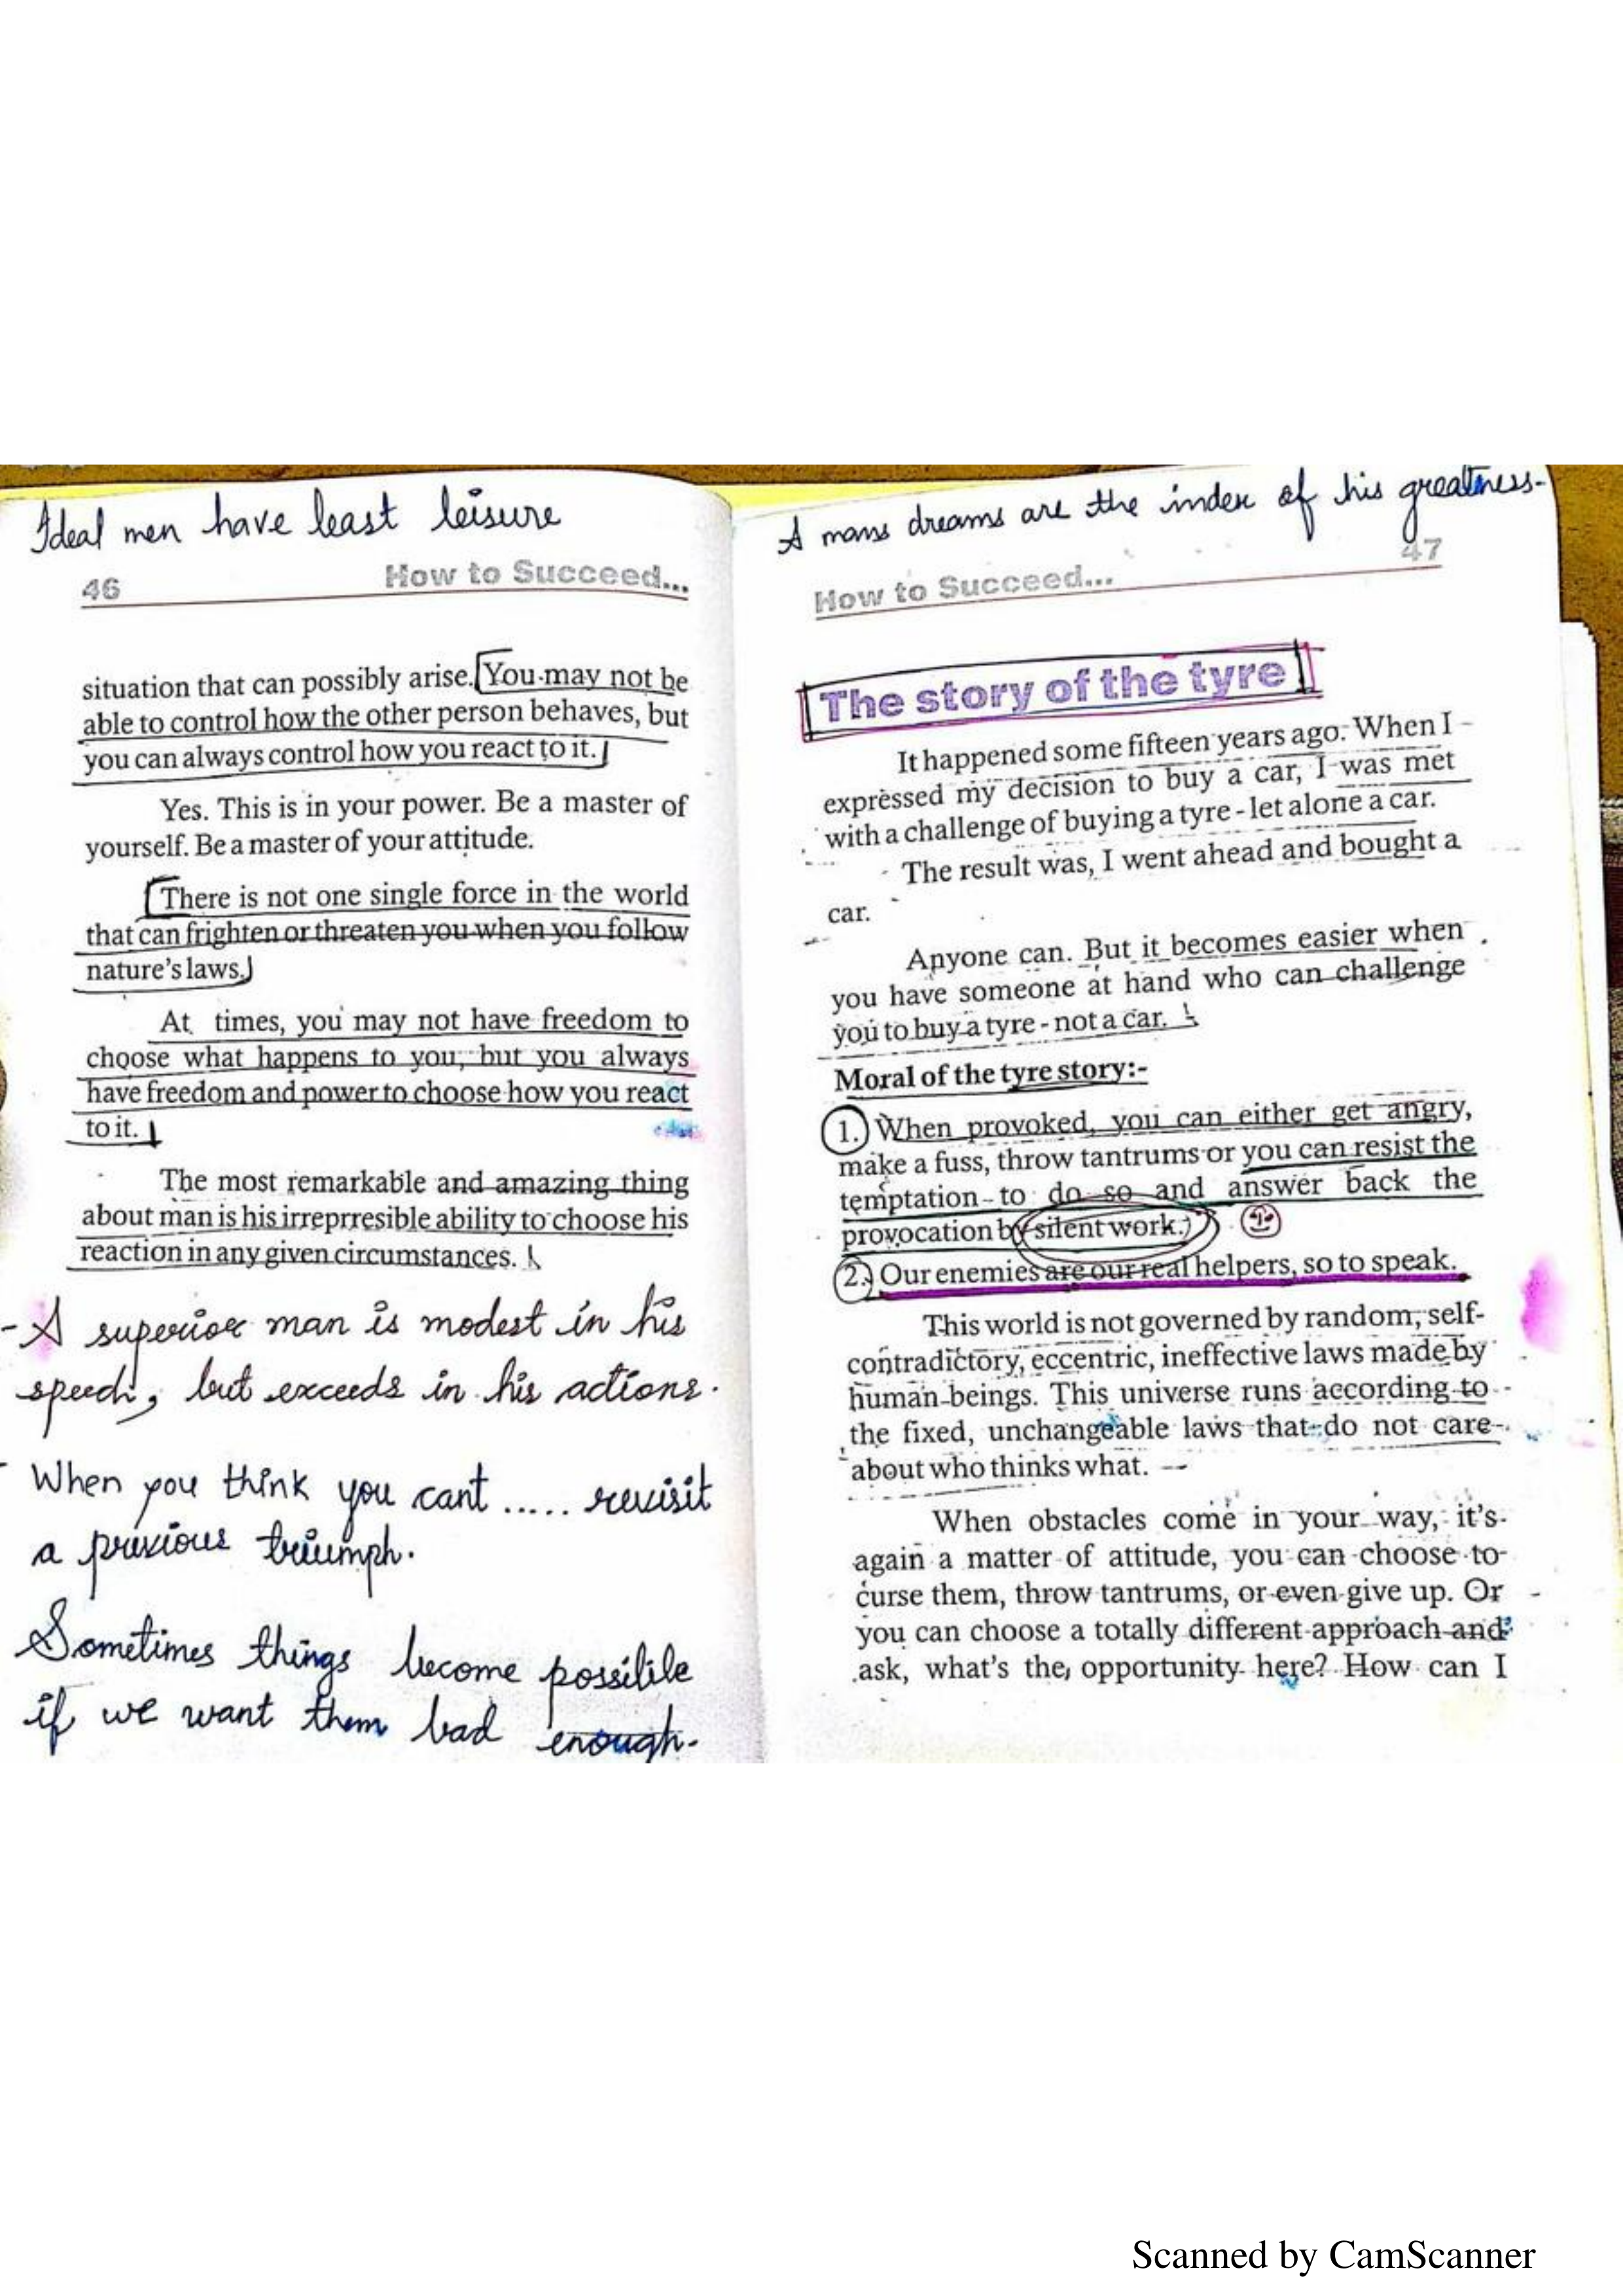 Ideal men have least leisure
46 How to Succeed...
situation that can possibly arise. You may not be
able to control how the other person behaves, but
you can always control how you react to it.
Yes. This is in your power. Be a master of
yourself. Be a master of your attitude.
There is not one single force in the world
that can frighten or threaten you when you follow
nature's laws.
At times, you may not have freedom to
choose what happens to you, but you always
have freedom and power to choose how you react
to it.
The most remarkable and amazing thing
about man is his irreprresible ability to choose his
reaction in any given circumstances.
- A superior man is modest in his
speech, but exceeds in his actions.
- When you think you cant ...... revisit
a previous triumph.
Sometimes things become possible
if we want them bad enough.
A mans dreams are the index of his greatness.
How to Succeed... 47
The story of the tyre
It happened some fifteen years ago. When I
expressed my decision to buy a car, I was met
with a challenge of buying a tyre - let alone a car.
The result was, I went ahead and bought a
car.
Anyone can. But it becomes easier when
you have someone at hand who can challenge
you to buy a tyre - not a car.
Moral of the tyre story:-
1. When provoked, you can either get angry,
make a fuss, throw tantrums or you can resist the
temptation to do so and answer back the
provocation by silent work.
2. Our enemies are our real helpers, so to speak.
This world is not governed by random, self-
contradictory, eccentric, ineffective laws made by
human beings. This universe runs according to
the fixed, unchangeable laws that do not care
about who thinks what.
When obstacles come in your way, it's
again a matter of attitude, you can choose to
curse them, throw tantrums, or even give up. Or
you can choose a totally different approach and
ask, what's the opportunity here? How can I
Scanned by CamScanner